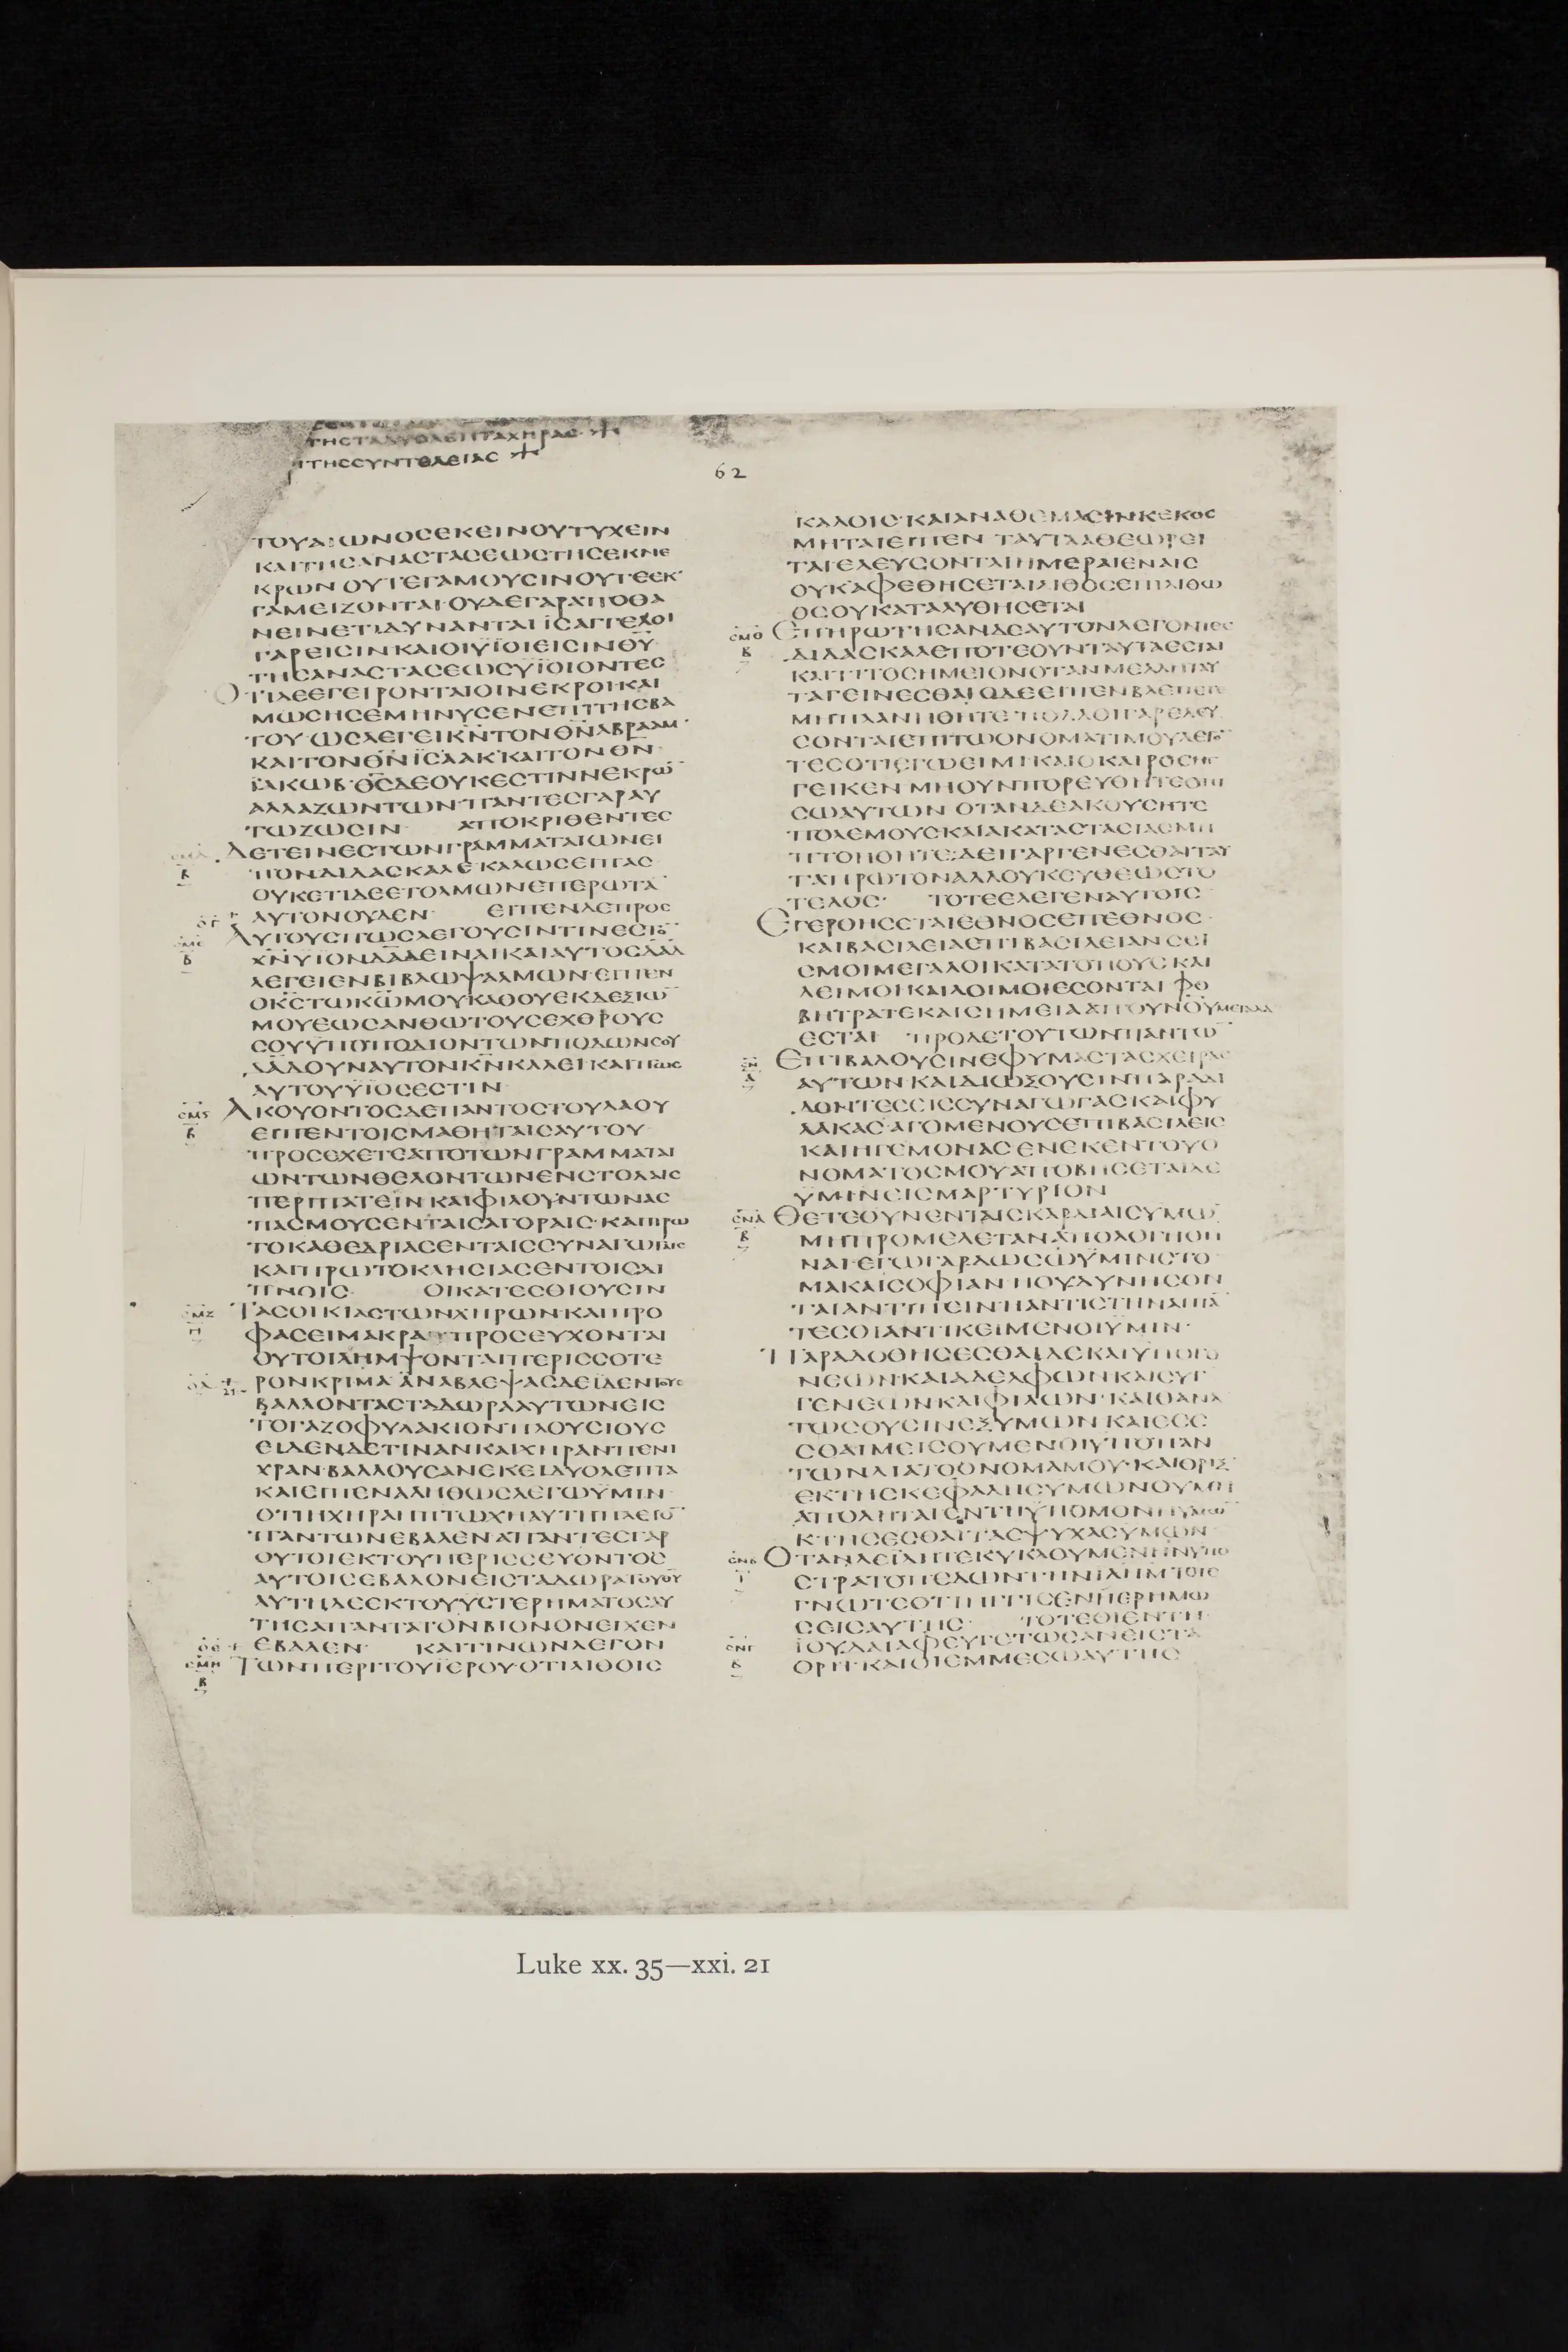 ΤΗΣΤΑΔΥΟΛΕΠΤΑΧΗΡΑΣ
ΠΤΗΣΣΥΝΤΕΛΕΙΑΣ
62
ΤΟΥΑΙΩΝΟϹΕΚΕΙΝΟΥΤΥΧΕΙΝ
ΚΑΙΤΗϹΑΝΑϹΤΑϹΕΩϹΤΗϹΕΚΝΕ
ΚΡΩΝ ΟΥΤΕΓΑΜΟΥϹΙΝΟΥΤΕΕΚ
ΓΑΜΕΙΖΟΝΤΑΙ·ΟΥΔΕΓΑΡΑΠΟΘΑ
ΝΕΙΝΕΤΙΔΥΝΑΝΤΑΙ ΙϹΑΓΓΕΛΟΙ
ΓΑΡΕΙϹΙΝΚΑΙΟΙΫΙΟΙΕΙϹΙΝΘΥ
ΤΗϹΑΝΑϹΤΑϹΕΩϹΥΪΟΙΟΝΤΕϹ
ΟΤΙΔΕΕΓΕΙΡΟΝΤΑΙΟΙΝΕΚΡΟΙΚΑΙ
ΜΩϹΗϹΕΜΗΝΥϹΕΝΕΠΙΤΗϹΒΑ
ΤΟΥ·ΩϹΛΕΓΕΙΚΝΤΟΝΘΝΑΒΡΑΑΜ·
ΚΑΙΤΟΝΘΝ ΙϹΑΑΚ·ΚΑΙΤΟΝΘΝ
ΪΑΚΩΒ·ΘϹΔΕΟΥΚΕϹΤΙΝΝΕΚΡΩ̄
ΑΛΛΑΖΩΝΤΩΝ·ΠΑΝΤΕϹΓΑΡΑΥ
ΤΩΖΩϹΙΝ· ΑΠΟΚΡΙΘΕΝΤΕϹ
ΔΕΤΕΙΝΕϹΤΩΝΓΡΑΜΜΑΤΑΙΩΝΕΙ
ΠΟΝΔΙΔΑϹΚΑΛΕΚΑΛΩϹΕΙΠΑϹ·
ΟΥΚΕΤΙΔΕΕΤΟΛΜΩΝΕΠΕΡΩΤᾹ
ΑΥΤΟΝΟΥΔΕΝ· ΕΙΠΕΝΔΕΠΡΟϹ
ΑΥΤΟΥϹΠΩϹΛΕΓΟΥϹΙΝΤΙΝΕϹΤΟ̄
ΧΝΥΪΟΝΔΑΔΕΙΝΑΙ·ΚΑΙΑΥΤΟϹΔΑΔ
ΛΕΓΕΙΕΝΒΙΒΛΩΨΑΛΜΩΝ·ΕΙΠΕΝ
ΟΚϹΤΩΚΩΜΟΥΚΑΘΟΥΕΚΔΕΞΙΩ̄
ΜΟΥΕΩϹΑΝΘΩΤΟΥϹΕΧΘΡΟΥϹ
ϹΟΥΫΠΟΠΟΔΙΟΝΤΩΝΠΟΔΩΝϹΟΥ
ΔΑΔΟΥΝΑΥΤΟΝΚΝΚΑΛΕΙ·ΚΑΙΠΩϹ
ΑΥΤΟΥΫΙΟϹΕϹΤΙΝ·
ΑΚΟΥΟΝΤΟϹΔΕΠΑΝΤΟϹΤΟΥΛΑΟΥ
ΕΙΠΕΝΤΟΙϹΜΑΘΗΤΑΙϹΑΥΤΟΥ·
ΠΡΟϹΕΧΕΤΕΑΠΟΤΩΝΓΡΑΜΜΑΤΑΙ
ΩΝΤΩΝΘΕΛΟΝΤΩΝΕΝϹΤΟΛΑΙϹ
ΠΕΡΙΠΑΤΕΙΝ ΚΑΙΦΙΛΟΥΝΤΩΝΑϹ
ΠΑϹΜΟΥϹΕΝΤΑΙϹΑΓΟΡΑΙϹ·ΚΑΙΠΡΩ
ΤΟΚΑΘΕΔΡΙΑϹΕΝΤΑΙϹϹΥΝΑΓΩΓΑΙϹ
ΚΑΙΠΡΩΤΟΚΛΗϹΙΑϹΕΝΤΟΙϹΔΙ
ΠΝΟΙϹ· ΟΙΚΑΤΕϹΘΙΟΥϹΙΝ
ΤΑϹΟΙΚΙΑϹΤΩΝΧΗΡΩΝ·ΚΑΙΠΡΟ
ΦΑϹΕΙΜΑΚΡΑΠΡΟϹΕΥΧΟΝΤΑΙ
ΟΥΤΟΙΛΗΜΨΟΝΤΑΙΠΕΡΙϹϹΟΤΕ
ΡΟΝΚΡΙΜΑ·ΑΝΑΒΛΕΨΑϹΔΕΪΔΕΝΤΟΥϹ
ΒΑΛΛΟΝΤΑϹΤΑΔΩΡΑΑΥΤΩΝΕΙϹ
ΤΟΓΑΖΟΦΥΛΑΚΙΟΝΠΛΟΥϹΙΟΥϹ
ΕΙΔΕΝΔΕΤΙΝΑΝΚΑΙΧΗΡΑΝΠΕΝΙ
ΧΡΑΝ·ΒΑΛΛΟΥϹΑΝΕΚΕΙΔΥΟΛΕΠΤΑ
ΚΑΙΕΙΠΕΝΑΛΗΘΩϹΛΕΓΩΥΜΙΝ·
ΟΤΙΗΧΗΡΑΗΠΤΩΧΗΑΥΤΗΠΛΕΙΟ̄
ΠΑΝΤΩΝΕΒΑΛΕΝ·ΑΠΑΝΤΕϹΓΑΡ
ΟΥΤΟΙΕΚΤΟΥΠΕΡΙϹϹΕΥΟΝΤΟϹ
ΑΥΤΟΙϹΕΒΑΛΟΝΕΙϹΤΑΔΩΡΑΤΟΥΘΥ
ΑΥΤΗΔΕΕΚΤΟΥΥϹΤΕΡΗΜΑΤΟϹΑΥ
ΤΗϹΑΠΑΝΤΑΤΟΝΒΙΟΝΟΝΕΙΧΕΝ
ΕΒΑΛΕΝ· ΚΑΙΤΙΝΩΝΛΕΓΟΝ
ΤΩΝΠΕΡΙΤΟΥΪΕΡΟΥ·ΟΤΙΛΙΘΟΙϹ
ΚΑΛΟΙϹ·ΚΑΙΑΝΑΘΕΜΑϹΙΝΚΕΚΟϹ
ΜΗΤΑΙΕΙΠΕΝ ΤΑΥΤΑΑΘΕΩΡΕΙ
ΤΑΙΕΛΕΥϹΟΝΤΑΙΗΜΕΡΑΙΕΝΑΙϹ
ΟΥΚΑΦΕΘΗϹΕΤΑΙΛΙΘΟϹΕΠΙΛΙΘΩ
ΟϹΟΥΚΑΤΑΛΥΘΗϹΕΤΑΙ
ΕΠΗΡΩΤΗϹΑΝΔΕΑΥΤΟΝΛΕΓΟΝΤΕϹ
ΔΙΔΑϹΚΑΛΕΠΟΤΕΟΥΝΤΑΥΤΑΕϹΤΑΙ
ΚΑΙΤΙΤΟϹΗΜΕΙΟΝΟΤΑΝΜΕΛΛΗΤΑΥ
ΤΑΓΕΙΝΕϹΘΑΙ·ΟΔΕΕΙΠΕΝΒΛΕΠΕΤΕ
ΜΗΠΛΑΝΗΘΗΤΕ·ΠΟΛΛΟΙΓΑΡΕΛΕΥ
ϹΟΝΤΑΙΕΠΙΤΩΟΝΟΜΑΤΙΜΟΥΛΕΓΟ̄
ΤΕϹΟΤΙΕΓΩΕΙΜΙ·ΚΑΙΟΚΑΙΡΟϹΗΓ
ΓΕΙΚΕΝ ΜΗΟΥΝΠΟΡΕΥΘΗΤΕΟΠΙ
ϹΩΑΥΤΩΝ ΟΤΑΝΔΕΑΚΟΥϹΗΤΕ
ΠΟΛΕΜΟΥϹΚΑΙΑΚΑΤΑϹΤΑϹΙΑϹΜΗ
ΠΤΟΗΘΗΤΕ·ΔΕΙΓΑΡΓΕΝΕϹΘΑΙΤΑΥ
ΤΑΠΡΩΤΟΝΑΛΛΟΥΚΕΥΘΕΩϹΤΟ
ΤΕΛΟϹ· ΤΟΤΕΕΛΕΓΕΝΑΥΤΟΙϹ
ΕΓΕΡΘΗϹΕΤΑΙΕΘΝΟϹΕΠΕΘΝΟϹ·
ΚΑΙΒΑϹΙΛΕΙΑΕΠΙΒΑϹΙΛΕΙΑΝϹΕΙ
ϹΜΟΙΜΕΓΑΛΟΙΚΑΤΑΤΟΠΟΥϹΚΑΙ
ΛΕΙΜΟΙΚΑΙΛΟΙΜΟΙΕϹΟΝΤΑΙ ΦΟ
ΒΗΤΡΑΤΕΚΑΙϹΗΜΕΙΑΑΠΟΥΝΟΥΜΕΓΑΛΑ
ΕϹΤΑΙ ΠΡΟΔΕΤΟΥΤΩΝΠΑΝΤΩ̄
ΕΠΙΒΑΛΟΥϹΙΝΕΦΥΜΑϹΤΑϹΧΕΙΡΑϹ
ΑΥΤΩΝ·ΚΑΙΔΙΩΞΟΥϹΙΝΠΑΡΑΔΙ
ΔΟΝΤΕϹΕΙϹϹΥΝΑΓΩΓΑϹΚΑΙΦΥ
ΛΑΚΑϹ·ΑΓΟΜΕΝΟΥϹΕΠΙΒΑϹΙΛΕΙϹ
ΚΑΙΗΓΕΜΟΝΑϹ ΕΝΕΚΕΝΤΟΥΟ
ΝΟΜΑΤΟϹΜΟΥΑΠΟΒΗϹΕΤΑΙΔΕ
ΥΜΙΝΕΙϹΜΑΡΤΥΡΙΟΝ
ΘΕΤΕΟΥΝΕΝΤΑΙϹΚΑΡΔΙΑΙϹΥΜΩ̄
ΜΗΠΡΟΜΕΛΕΤΑΝΑΠΟΛΟΓΗΘΗ
ΝΑΙ·ΕΓΩΓΑΡΔΩϹΩΫΜΙΝϹΤΟ
ΜΑΚΑΙϹΟΦΙΑΝ ΗΟΥΔΥΝΗϹΟΝ
ΤΑΙΑΝΤΙΠΕΙΝΗΑΝΤΙϹΤΗΝΑΙΠᾹ
ΤΕϹΟΙΑΝΤΙΚΕΙΜΕΝΟΙΥΜΙΝ·
ΠΑΡΑΔΟΘΗϹΕϹΘΑΙΔΕΚΑΙΥΠΟΓΟ
ΝΕΩΝ·ΚΑΙΑΔΕΛΦΩΝΚΑΙϹΥΓ
ΓΕΝΕΩΝΚΑΙΦΙΛΩΝ·ΚΑΙΘΑΝΑ
ΤΩϹΟΥϹΙΝΕΞΥΜΩΝ ΚΑΙΕϹΕ
ϹΘΑΙΜΕΙϹΟΥΜΕΝΟΙΥΠΟΠΑΝ
ΤΩΝΔΙΑΤΟΟΝΟΜΑΜΟΥ·ΚΑΙΘΡΙΞ
ΕΚΤΗϹΚΕΦΑΛΗϹΥΜΩΝΟΥΜΗ
ΑΠΟΛΗΤΑΙΕΝΤΗΫΠΟΜΟΝΗΥΜΩ̄
ΚΤΗϹΕϹΘΑΙΤΑϹΨΥΧΑϹΥΜΩΝ·
ΟΤΑΝΔΕΪΔΗΤΕΚΥΚΛΟΥΜΕΝΗΝΥΠΟ
ϹΤΡΑΤΟΠΕΔΩΝΤΗΝΙΛΗΜ·ΤΟΤΕ
ΓΝΩΤΕΟΤΙΗΓΓΙϹΕΝΗΕΡΗΜΩ
ϹΕΙϹΑΥΤΗϹ· ΤΟΤΕΟΙΕΝΤΗ
ΪΟΥΔΑΙΑΦΕΥΓΕΤΩϹΑΝΕΙϹΤΑ
ΟΡΗ·ΚΑΙΟΙΕΜΜΕϹΩΑΥΤΗϹ
Luke xx. 35—xxi. 21